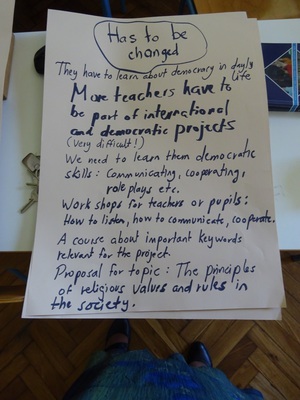 Has to be
changed
They have to learn about democracy in dayly
life
More teachers have to
be part of international
and democratic projects
(Very difficult!)
We need to learn them democratic
skills: Communicating, cooperating,
role plays etc.
Work shops for teachers or pupils:
How to listen, how to communicate, cooperate.
A course about important keywords
relevant for the project.
Proposal for topic: The principles
of religious values and rules in
the society.